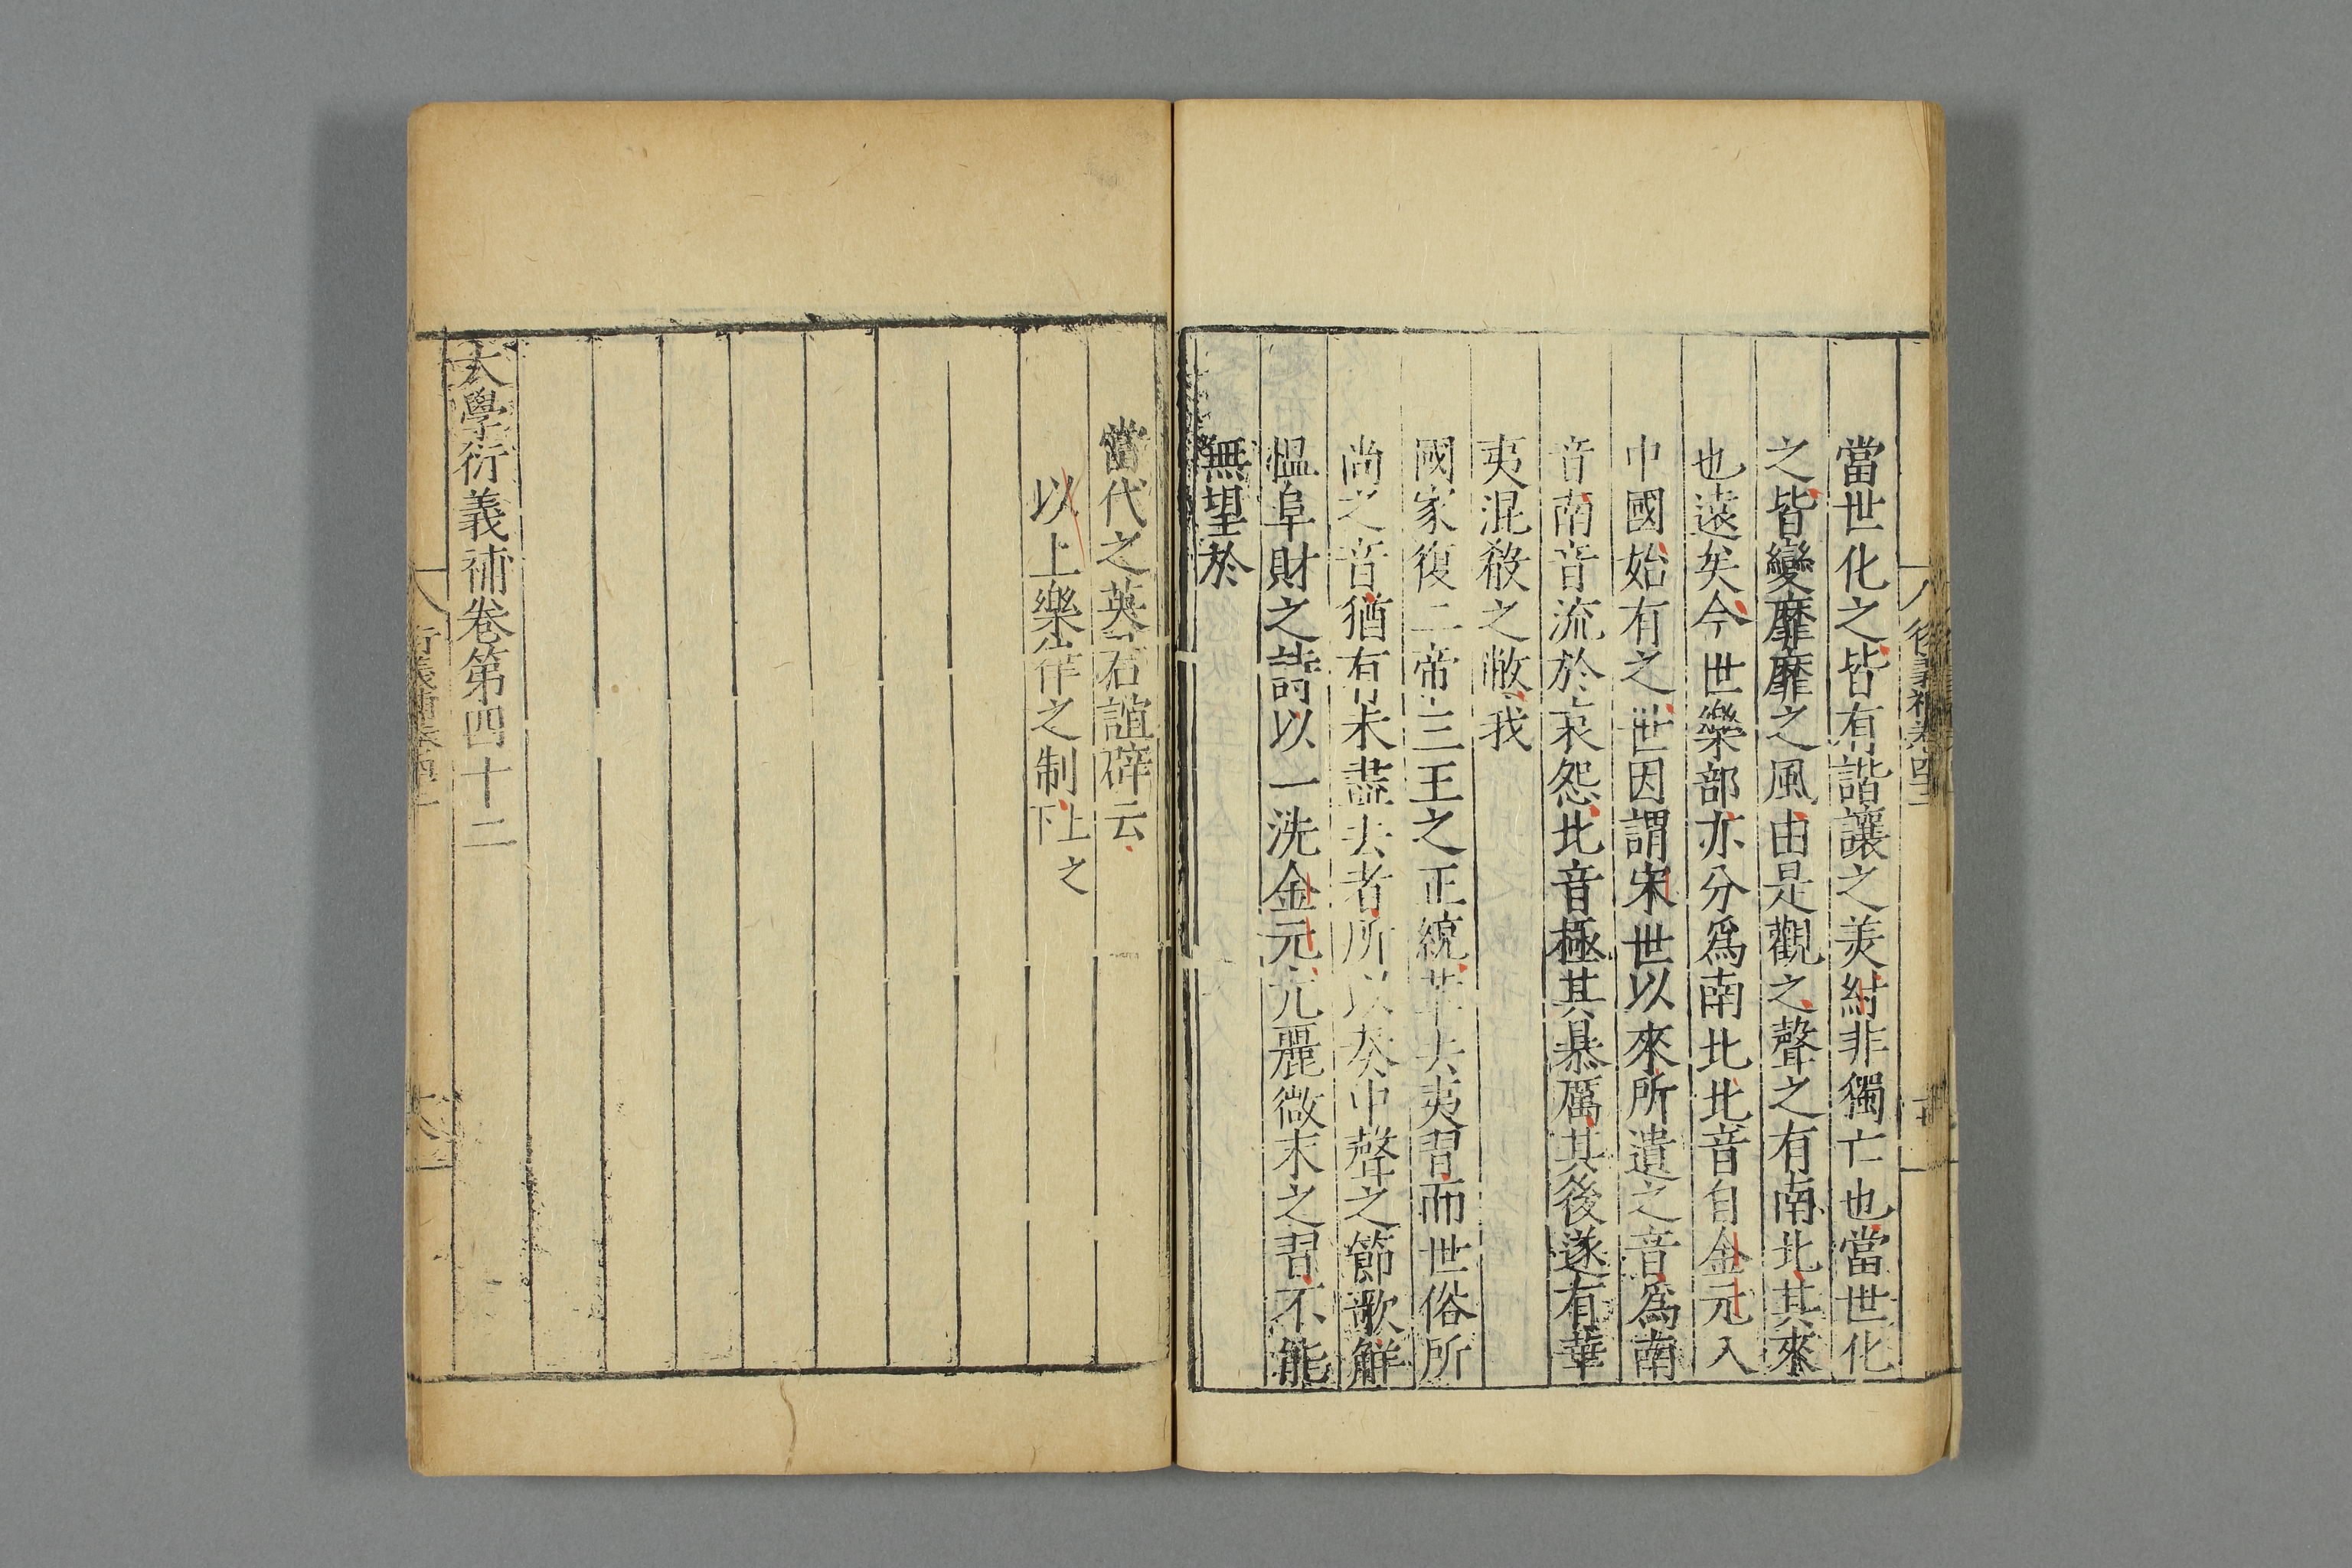 當世化之皆有諧讓之美紂非獨亡也當世化
之皆變靡靡之風由是觀之聲之有南北其來
也遠矣今世樂部亦分爲南北北音自金元入
中國始有之世因謂宋世以來所遺之音爲南
音南音流於哀怨北音極其暴厲其後遂有華
夷混殽之敝我
國家復二帝三王之正統革去夷習而世俗所
尚之音猶有未盡去者所以奏中聲之節歌解
慍阜財之詩以一洗金元尤麗微末之習不能
無望於
當代之英君誼辟云
以上樂律之制上之下
大學衍義補卷第四十二